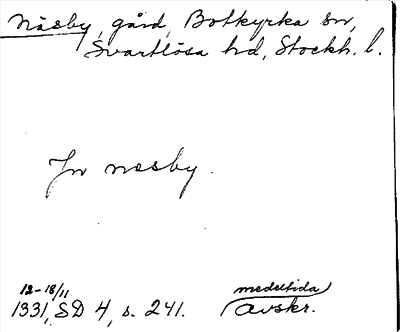 Näsby, gård, Botkyrka sn,
Svartlösa hd, Stockh. l.
Jn næsby.
12-18/11
1331, SD 4, s. 241.
medeltida
avskr.